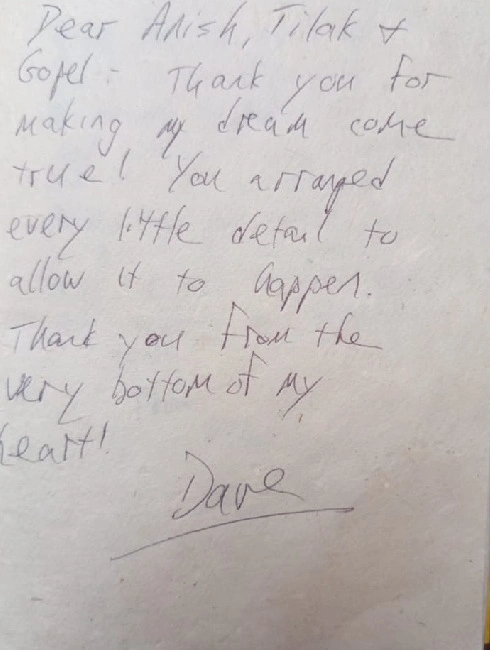 Dear Anish, Tilak +
Gopel: Thank you for
making my dream come
true! You arranged
every little detail to
allow it to happen.
Thank you from the
very bottom of my
heart!
Dave